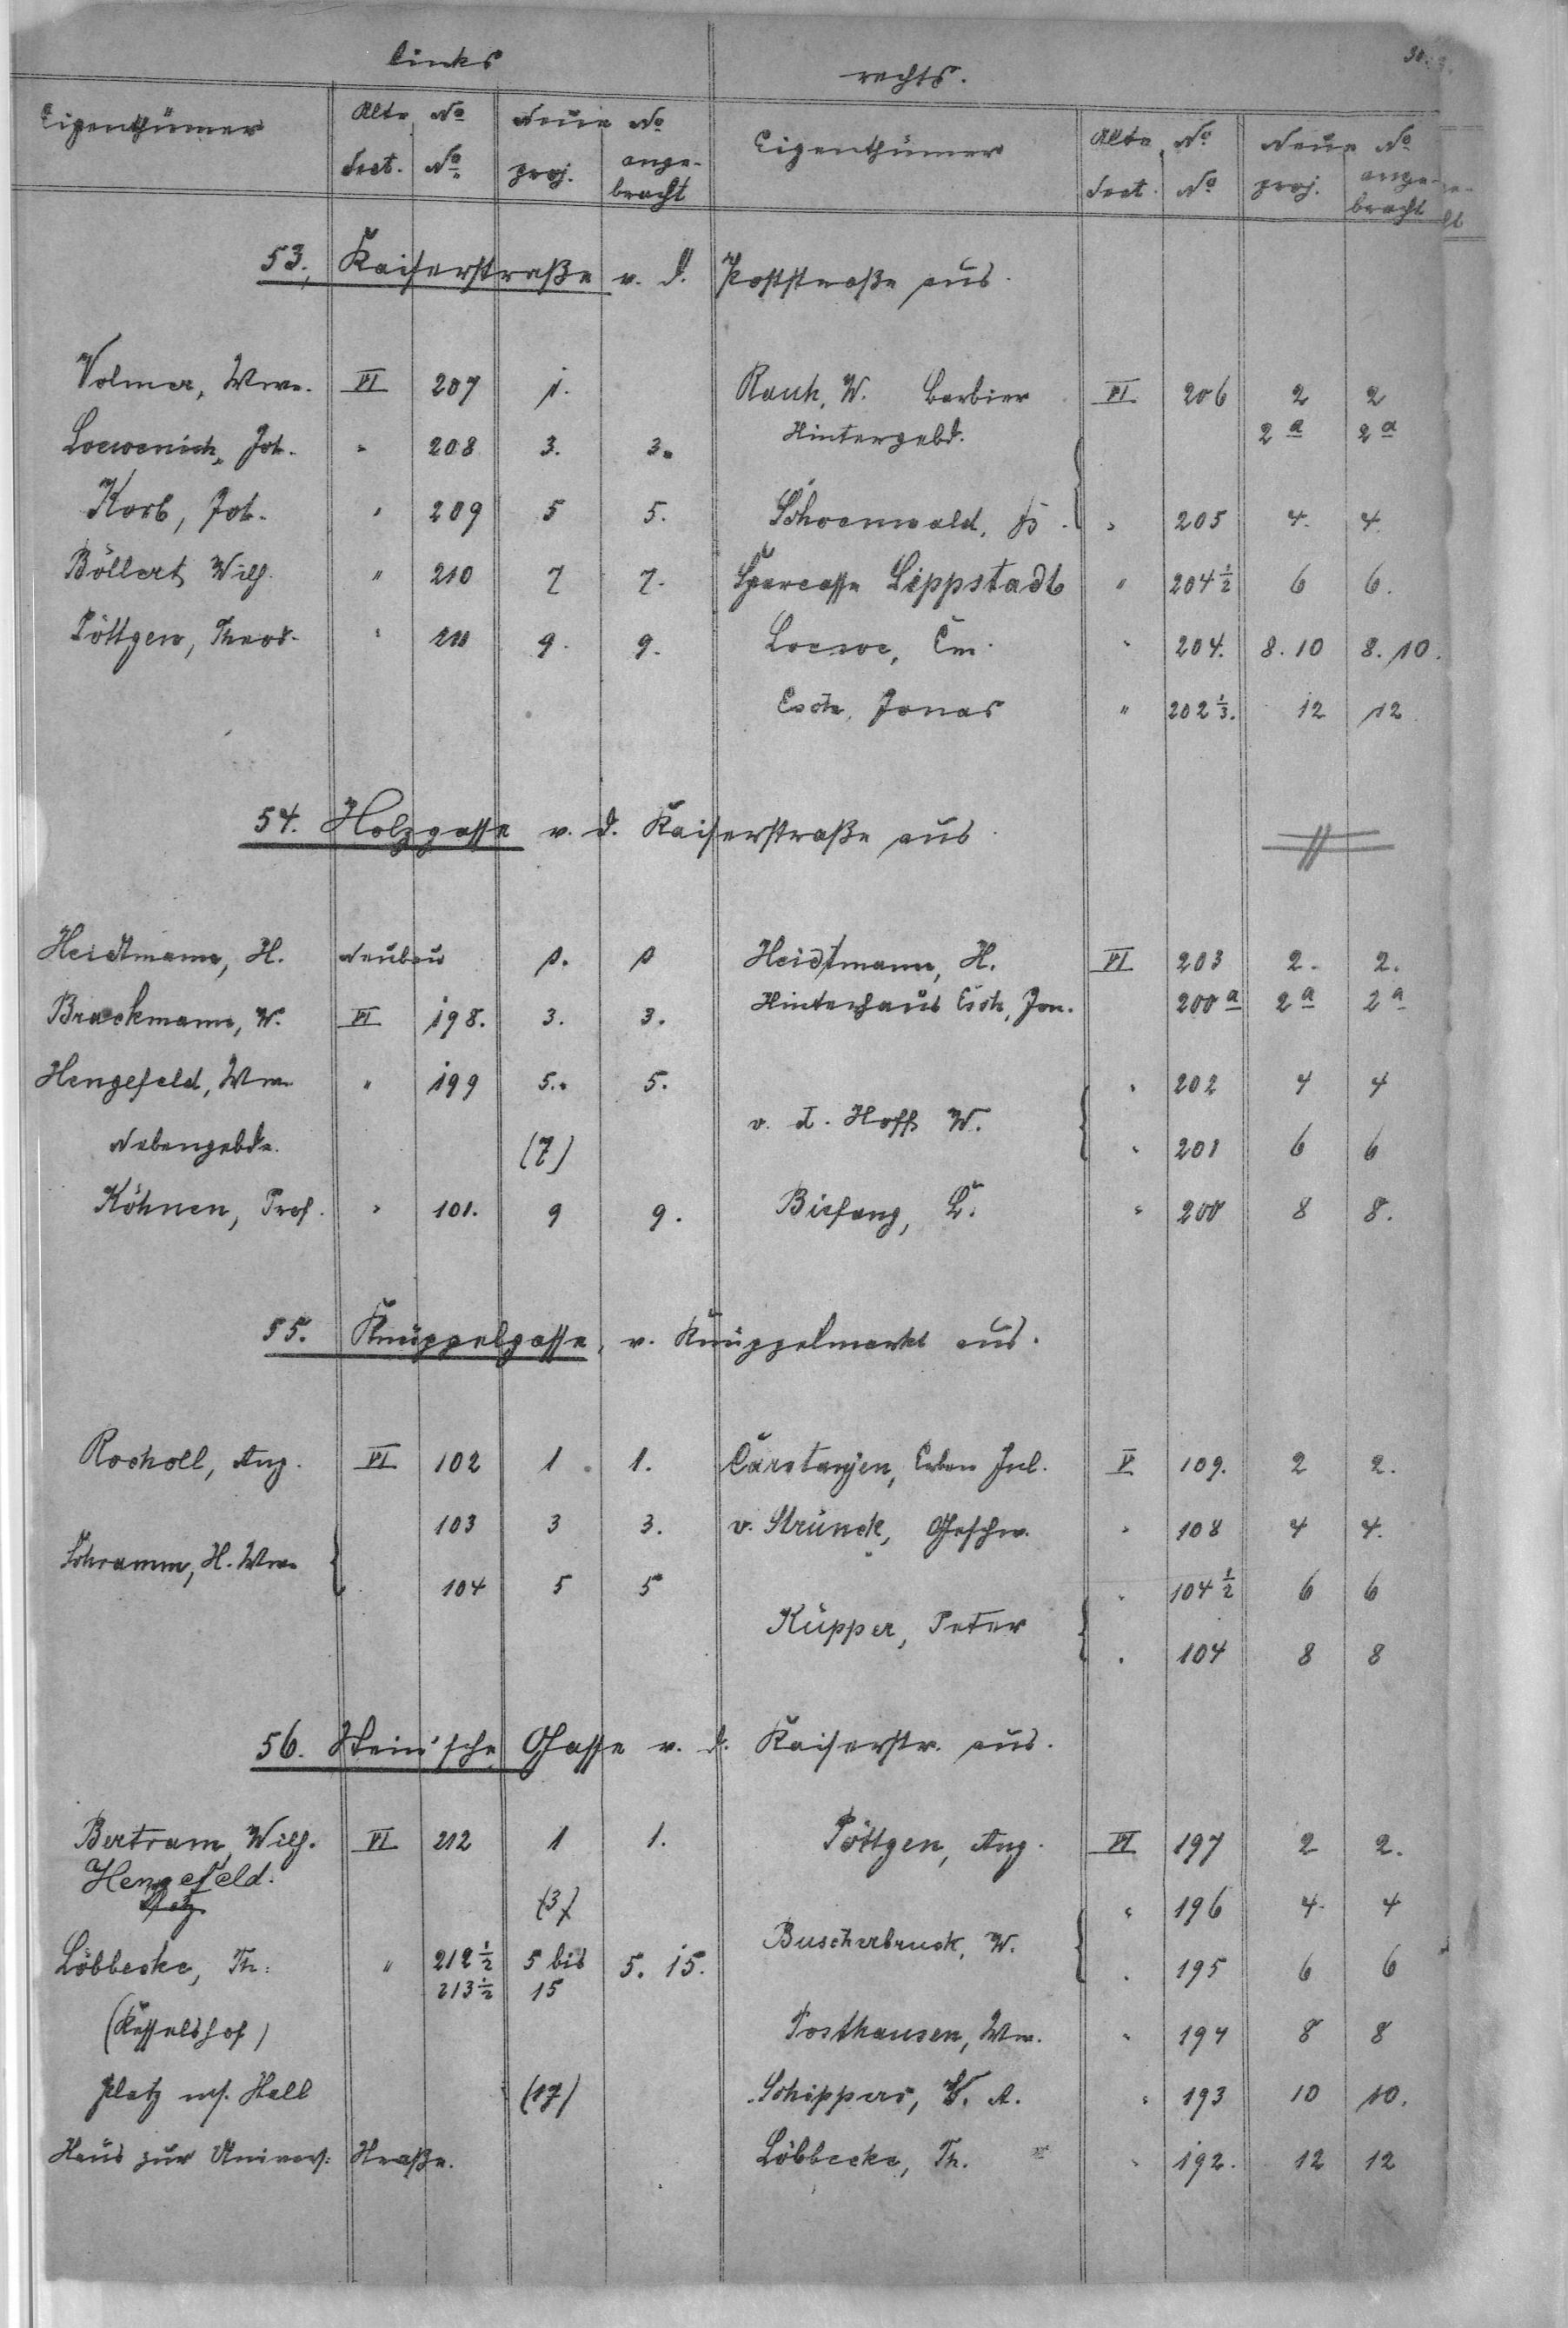 30.
links rechts.
Eigenthümer Alte No Neue No Eigenthümer Alte No Neue No
Sect. No proj. angebracht Sect. No proj. angebracht
53., Kaiserstraße v. d. Poststraße aus.
Volmer, Wwe. VI 207 1. Rauh, W. Barbier VI 206 2 2
Hintergebd. 2a 2a
Loewenich, Joh. " 208 3. 3.
Korb, Joh. " 209 5 5. Schoenwald, " 205 4. 4.
Böllert, Wilh. " 210 7 7. Sparcasse Lippstadt " 204½ 6 6.
Pöttgen, Theod. " 211 9. 9. Loewe, Em. " 204. 8. 10 8. 10.
Esch, Jonas " 202⅓. 12 12
54. Holzgasse v. d. Kaiserstraße aus.
Heidtmann, H. Neubau 1. 1 Heidtmann, H. VI 203 2. 2.
Hinterhaus Esch, Jon. 200a 2a 2a
Brackmann, W. VI 198. 3. 3.
Hengefeld, Wwe. " 199 5. 5. " 202 4 4
v. d. Hoff, W.
Nebengebde. (7) " 201 6 6
Köhnen, Prof. " 101. 9 9. Bisfang, L. " 200 8 8.
55. Knüppelgasse, v. Knüppelmarkt aus.
Rocholl, Aug. VI 102 1. 1. Carstanjen, Erben Jul. V 109. 2 2.
103 3 3. v. Strünck, Geschw. " 108 4 4.
Schramm, H. Wwe.
104 5 5 " 104½ 6 6
Küpper, Peter
" 104 8 8
56. Stein'sche Gasse v. d. Kaiserstr. aus.
Bertram, Wilh. VI 212 1 1. Pöttgen, Aug. VI 197 2 2.
Hengefeld.
(3) " 196 4 4
Buscherbruck, W.
Löbbecke, Th. " 212½ 5 bis 5. 15. " 195 6 6
213½ 15
(Kesselshof) Posthausen, Wwe. " 194 8 8
Platz (17) Schippers, A. " 193 10 10.
Haus zur Univers. Straße. Löbbecke, Th. " 192. 12 12